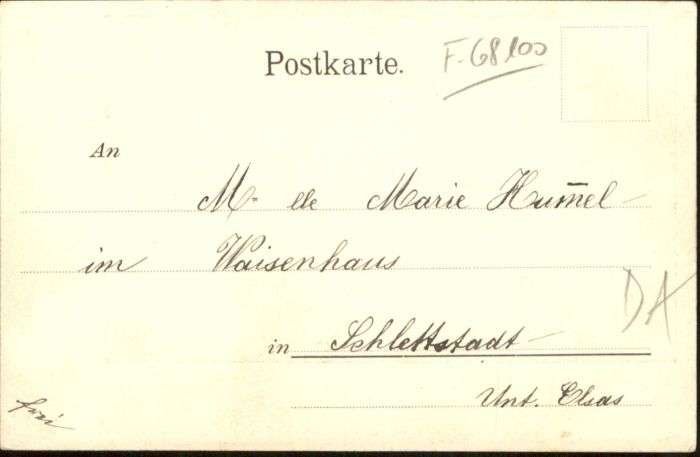 Postkarte.
F-68100
An
M. elle Marie Hum̄el
im Waisenhaus
DA
in Schlettstadt
Unt. Elsas
frei